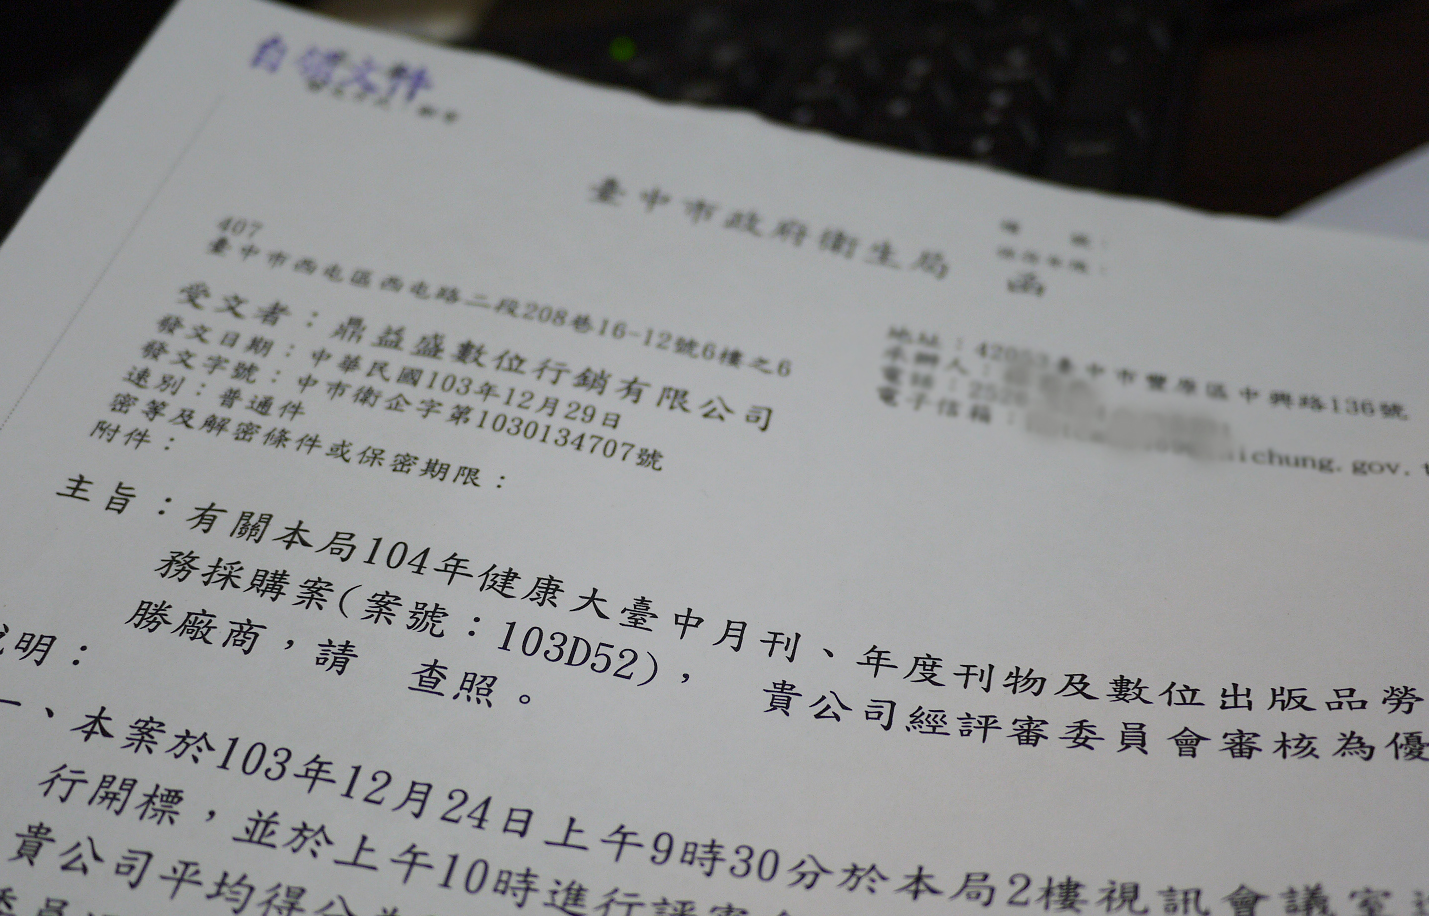 自領文件
臺中市政府衛生局　函
407
臺中市西屯區西屯路二段208巷16-12號6樓之6
地址：42053臺中市豐原區中興路136號
承辦人：
電話：2526
電子信箱：
ichung.gov.t
受文者：鼎益盛數位行銷有限公司
發文日期：中華民國103年12月29日
發文字號：中市衛企字第1030134707號
速別：普通件
密等及解密條件或保密期限：
附件：
主旨：有關本局104年健康大臺中月刊、年度刊物及數位出版品勞
務採購案(案號：103D52)，　貴公司經評審委員會審核為優
勝廠商，請　查照。
說明：
一、本案於103年12月24日上午9時30分於本局2樓視訊會議室
行開標，並於上午10時進行評審
貴公司平均得分為
委員